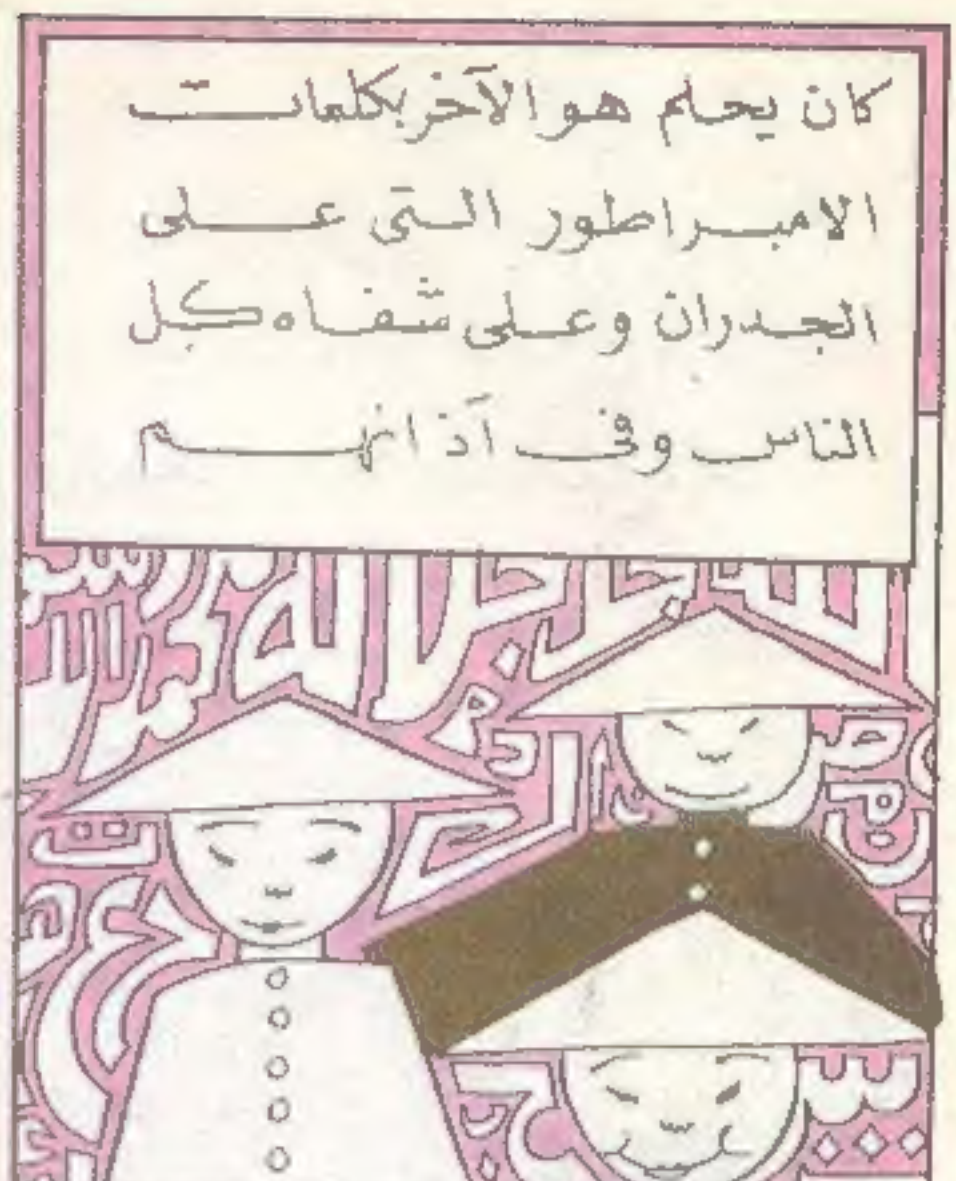 كان يحلم هو الآخر بكلمات
الامبراطور التى على
الجدران وعلى شفاه كل
الناس وفى آذانهم